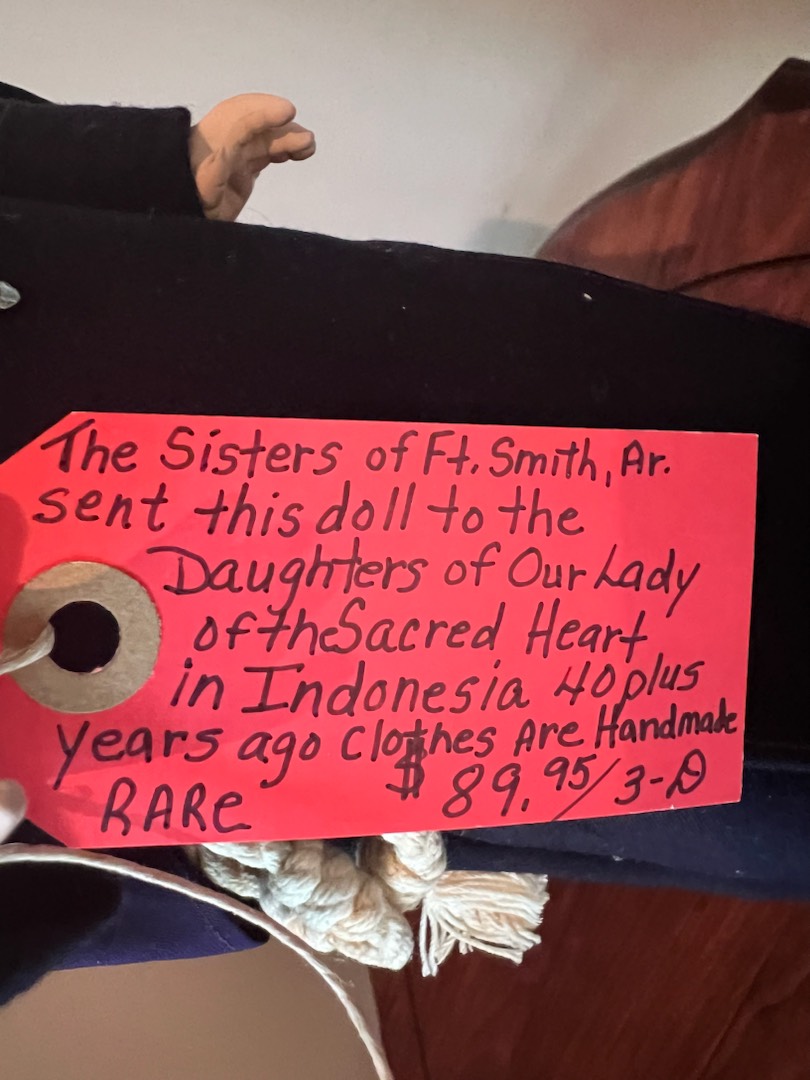 The Sisters of Ft. Smith, Ar.
sent this doll to the
Daughters of Our Lady
of the Sacred Heart
in Indonesia 40 plus
years ago Clothes Are Handmade
RARe $89.95/3-D